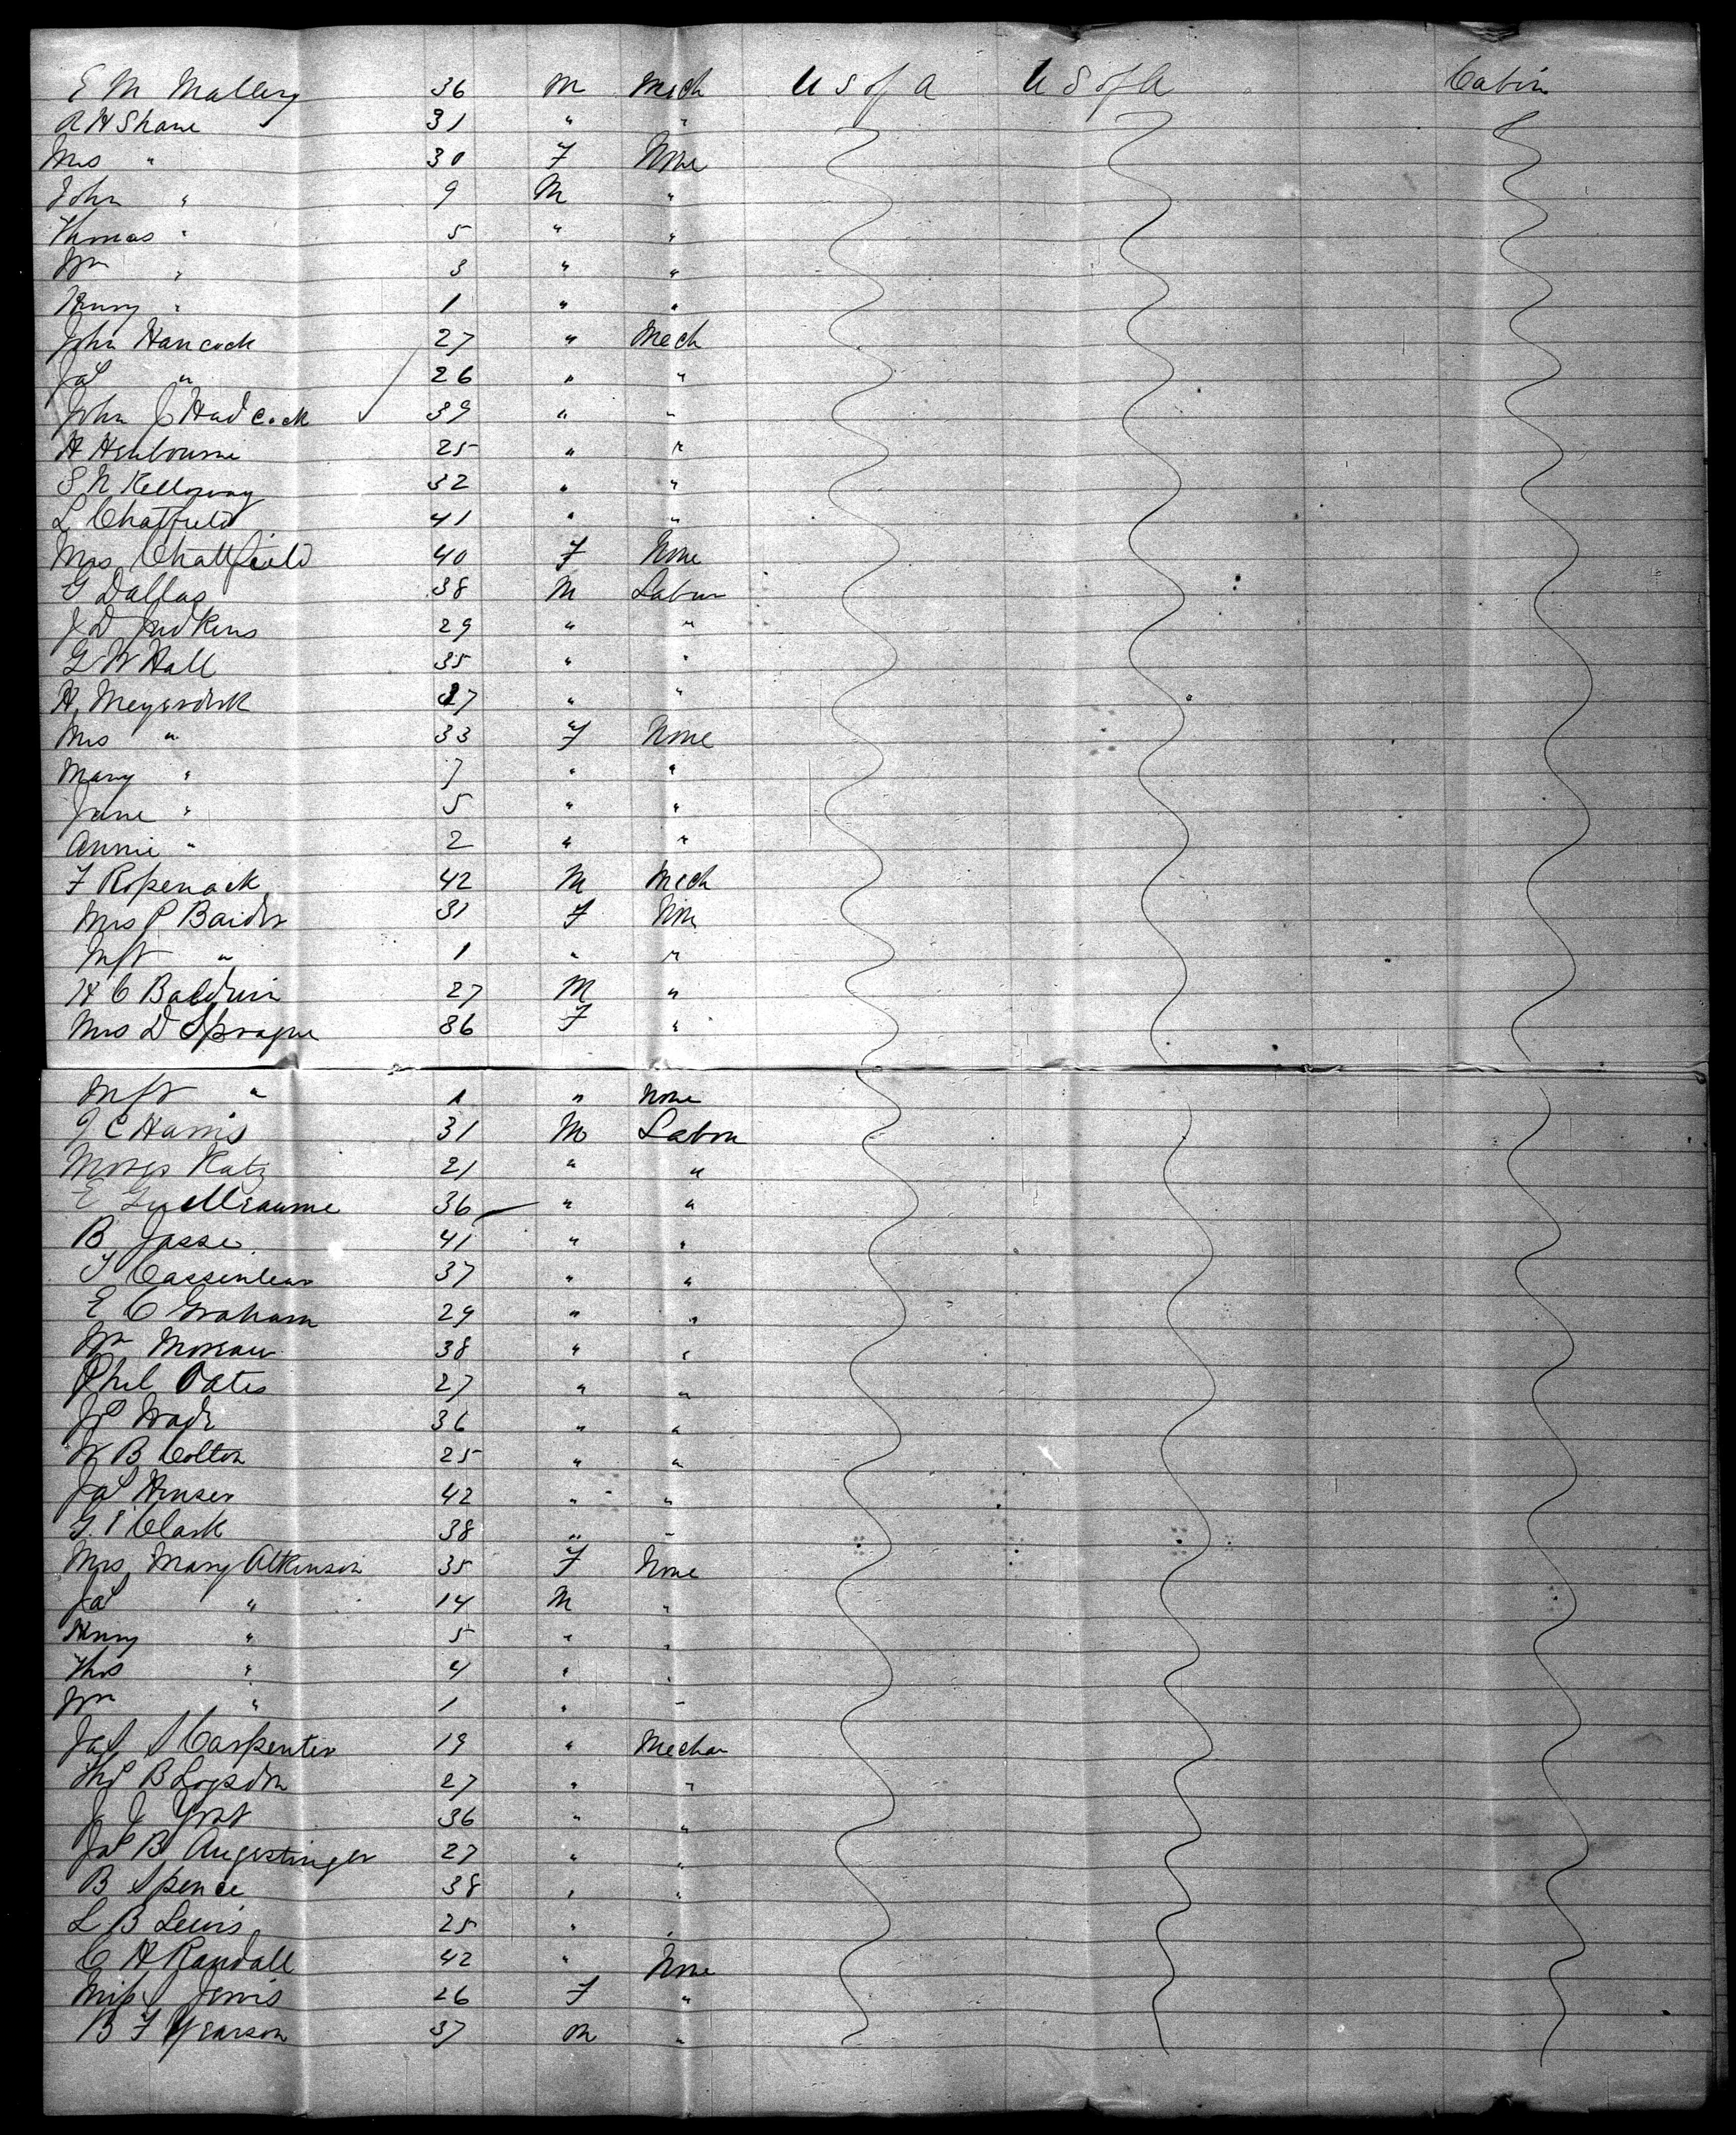 E M Mallery 36 M Mech U S of A U S of A Cabin
A H Shane 31 " "
Mrs " 30 F None
John " 9 M "
Thomas " 5 " "
Wm " 3 " "
Henry " 1 " "
John Hancock 27 " Mech
Jas " 26 " "
John J Hadcock 39 " "
H Ashbourne 25 " "
S N Kelloway 32 " "
L Chatfield 41 " "
Mrs Chattfield 40 F None
G Dallas 38 M Labor
J D Judkins 29 " "
G W Hall 35 " "
H. Meyerdirk 37 " "
Mrs " 33 F None
Mary " 7 " "
Jane " 5 " "
Annie " 2 " "
F Ropenack 42 M Mech
Mrs P Baider 31 F Non
Inft " 1 " "
H C Baldwin 27 M "
Mrs D Sprague 36 F "
Inft " 1 " None
J C Harris 31 M Labor
Moses Katz 21 " "
E 36 " "
B Jasse 41 " "
37 " "
E C Graham 29 " "
Wm Moreau 38 " "
Phil Oates 27 " "
Jas Wade 36 " "
W B Colton 25 " "
Jas Henser 42 " "
G. P Clark 38 " "
Mrs Mary Atkinson 35 F None
Jas " 14 M "
Henry " 5 " "
Thos " 4 " "
Wm " 1 " "
Jas S Carpenter 19 " Mechan
Thos B Logsdon 27 " "
J J Yost 36 " "
Jas B Augestinger 27 " "
B Spence 38 " "
L B Lewis 25 " "
C H Randall 42 " None
Miss J Jervis 26 F "
B F Yearson 37 M "